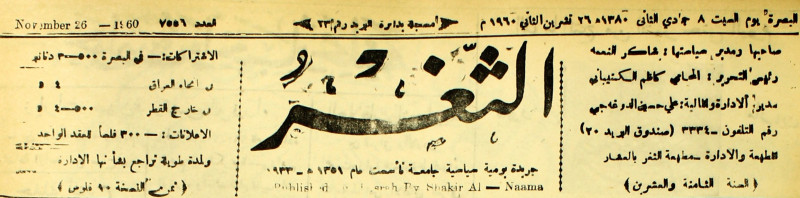 البصرة" يوم السبت ٨ جمادي الثاني ١٣٨٠ ه ٢٦ تشرين الثاني ١٩٦٠ م
"مسجلة بدائرة البريد رقم ٢٣"
العدد ٧٥٥٦
November 26 — 1960
صاحبها ومدير سياستها : شاكر النعمه
رئيس التحرير : المحامي كاظم
مدير الادارة والمالية : علي حسين
رقم التلفون — ٣٣٣٤ (صندوق البريد ٢٠)
المطبعة والادارة — مطبعة الثغر بالعشار
(السنة الثامنة والعشرين)
الثغر
جريدة يومية سياسية جامعة تأسست عام ١٣٥١ ه — ١٩٣٣
Published Basrah By Shakir Al — Naama
الاشتراكات : — في البصرة ٥٠٠—٣ دنانير
انحاء العراق
خارج القطر ٥٠٠—٤
الاعلانات : — ٣٠٠ فلساً للعقد الواحد
ولمدة طويلة تراجع بشأنها الادارة
(ثمن النسخة ١٠ فلوس)